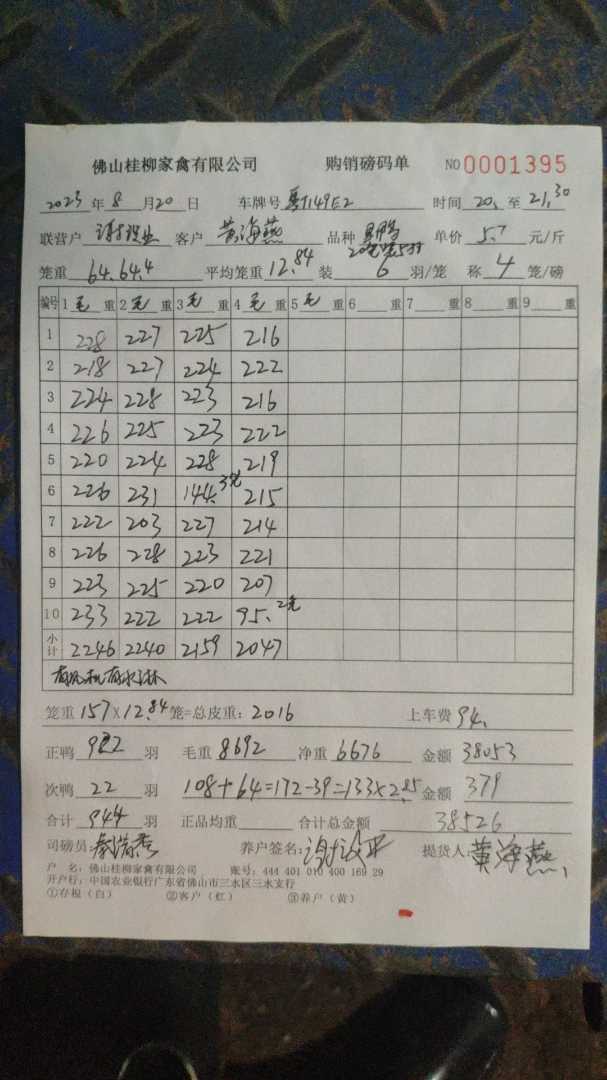 佛山桂柳家禽有限公司 购销磅码单 NO 0001395
2023年8月20日 车牌号 粤T149E2 时间 20, 至 21,30
联营户 客户 黄海燕 品种 单价 5.7 元/斤
笼重 64.64.4 平均笼重 12.84 装 6 羽/笼 称 4 笼/磅
编号 1毛重 2毛重 3毛重 4毛重 5毛重 6 重 7 重 8 重 9 重
1 228 227 225 216
2 218 227 224 222
3 224 228 223 216
4 226 225 223 222
5 220 224 228 219
6 226 231 144.3笼 215
7 222 203 227 214
8 226 228 223 221
9 223 225 220 207
10 233 222 222 95.2笼
小计 2246 2240 2159 2047
有风机有水淋
笼重 157×12.84 笼=总皮重:2016 上车费 94.
正鸭 922 羽 毛重 8692 净重 6676 金额 38053
次鸭 22 羽 108+64=172-39=133×2.85 金额 379
合计 944 羽 正品均重 合计总金额 38526
司磅员: 养户签名: 提货人: 黄海燕
户 名:佛山桂柳家禽有限公司 账号:444 401 010 400 169 29
开户行:中国农业银行广东省佛山市三水区三水支行
①存根(白) ②客户(红) ③养户(黄)